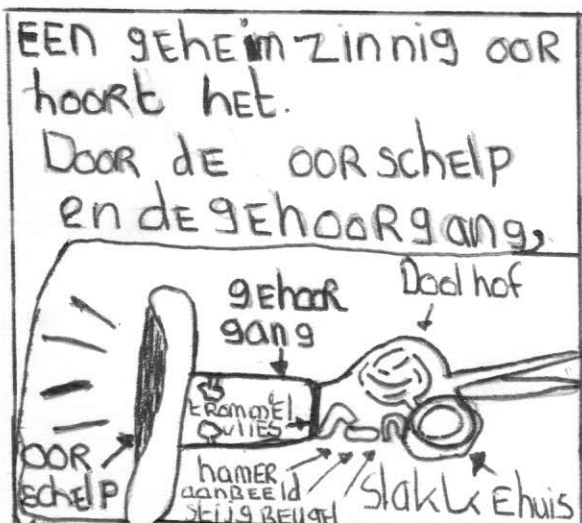 EEN gEhEimzinnig OOR
hOORt hEt.
DOOR dE OORschElp
en dE gEhOORgang,
gEhOOR
gang
Doolhof
tRommEl
vliES
OOR
schElp
hamER
aanBEEld
stijgBEUgEl
slakkEhuis